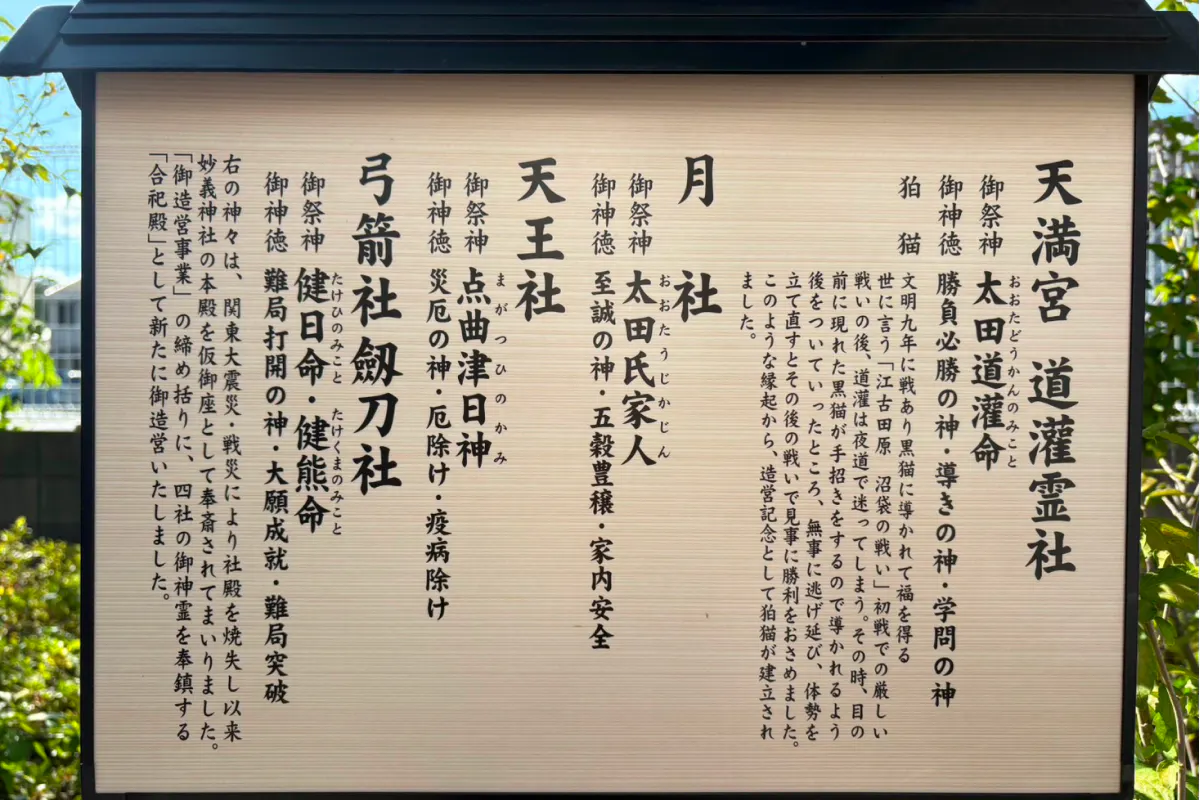 天満宮 道灌霊社
御祭神 太田道灌命
おおたどうかんのみこと
御神徳 勝負必勝の神・導きの神・学問の神
狛 猫 文明九年に戦あり黒猫に導かれて福を得る
世に言う「江古田原 沼袋の戦い」初戦での厳しい
戦いの後、道灌は夜道で迷ってしまう。その時、目の
前に現れた黒猫が手招きをするので導かれるよう
後をついていったところ、無事に逃げ延び、体勢を
立て直すとその後の戦いで見事に勝利をおさめました。
このような縁起から、造営記念として狛猫が建立され
ました。
月 社
御祭神 太田氏家人
おおたうじかじん
御神徳 至誠の神・五穀豊穣・家内安全
天王社
御祭神 点曲津日神
まがつひのかみ
御神徳 災厄の神・厄除け・疫病除け
弓箭社 劔刀社
御祭神 健日命・健熊命
たけひのみこと たけくまのみこと
御神徳 難局打開の神・大願成就・難局突破
右の神々は、関東大震災・戦災により社殿を焼失し以来
妙義神社の本殿を仮御座として奉斎されてまいりました。
「御造営事業」の締め括りに、四社の御神霊を奉鎮する
「合祀殿」として新たに御造営いたしました。